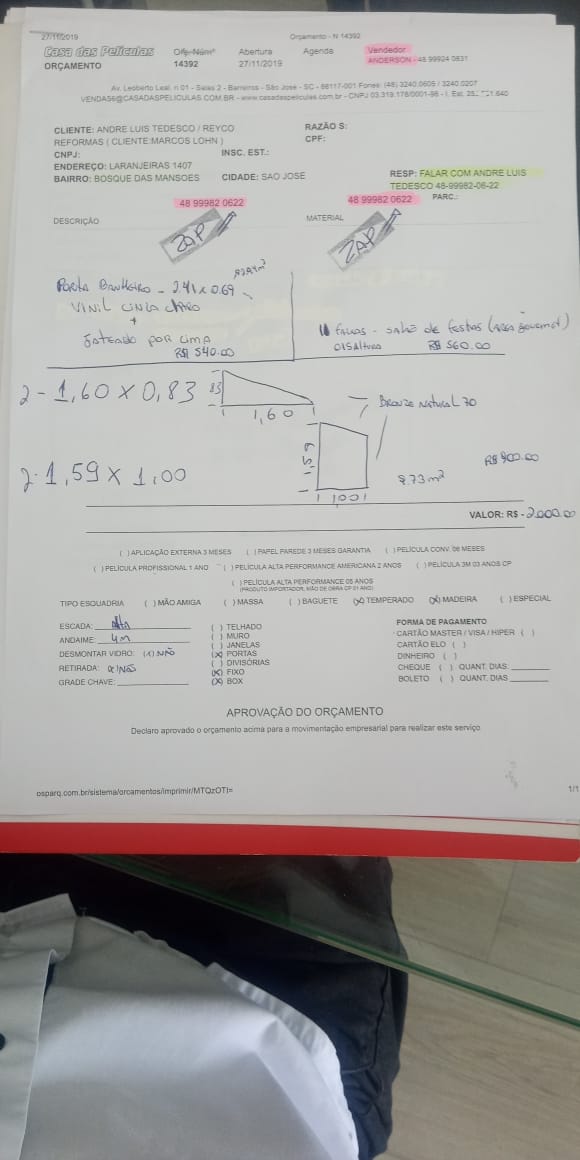 27/11/2019 Orçamento - N 14392
Casa das Películas Orç. Núm° Abertura Agenda Vendedor
ORÇAMENTO 14392 27/11/2019 ANDERSON - 48 99924 0831
Av. Leoberto Leal, n 01 - Salas 2 - Barreiros - São José - SC - 88117-001 Fones: (48) 3240.0605 / 3240.0207
VENDAS6@CASADASPELICULAS.COM.BR - www.casadaspeliculas.com.br - CNPJ 03.319.178/0001-98 - I. Est.
CLIENTE: ANDRE LUIS TEDESCO / REYCO RAZÃO S:
REFORMAS ( CLIENTE:MARCOS LOHN ) CPF:
CNPJ: INSC. EST.:
ENDEREÇO: LARANJEIRAS 1407 RESP: FALAR COM ANDRE LUIS
BAIRRO: BOSQUE DAS MANSOES CIDADE: SAO JOSE TEDESCO 48-99982-06-22
48 99982 0622 48 99982 0622 PARC.:
DESCRIÇÃO ZAP MATERIAL ZAP
Porta Banheiro - 2.41 x 0.69
VINIL CINZA CLARO
+
Jateado POR CIMA
R$ 540.00
11 faixas - salão de festas
R$ 560.00
2 - 1,60 x 0,83 83
1,60 Bronze Natural 70
2 - 1,59 x 1,00 1,59 9.73 m² R$ 900.00
1,00
VALOR: R$ - 2.000.00
( ) APLICAÇÃO EXTERNA 3 MESES ( ) PAPEL PAREDE 3 MESES GARANTIA ( ) PELÍCULA CONV. 06 MESES
( ) PELÍCULA PROFISSIONAL 1 ANO ( ) PELÍCULA ALTA PERFORMANCE AMERICANA 2 ANOS ( ) PELÍCULA 3M 03 ANOS CP
( ) PELÍCULA ALTA PERFORMANCE 05 ANOS
(PRODUTO IMPORTADOR, MÃO DE OBRA CP 01 ANO)
TIPO ESQUADRIA ( ) MÃO AMIGA ( ) MASSA ( ) BAGUETE (X) TEMPERADO (X) MADEIRA ( ) ESPECIAL
ESCADA: Alta
ANDAIME: 4m
DESMONTAR VIDRO: (X) NÃO
RETIRADA: (X) NÃO
GRADE CHAVE:
( ) TELHADO
( ) MURO
( ) JANELAS
(X) PORTAS
( ) DIVISÓRIAS
(X) FIXO
(X) BOX
FORMA DE PAGAMENTO
CARTÃO MASTER / VISA / HIPER ( )
CARTÃO ELO ( )
DINHEIRO ( )
CHEQUE ( ) QUANT. DIAS:
BOLETO ( ) QUANT. DIAS
APROVAÇÃO DO ORÇAMENTO
Declaro aprovado o orçamento acima para a movimentação empresarial para realizar este serviço
osparq.com.br/sistema/orcamentos/imprimir/MTQzOTI= 1/1